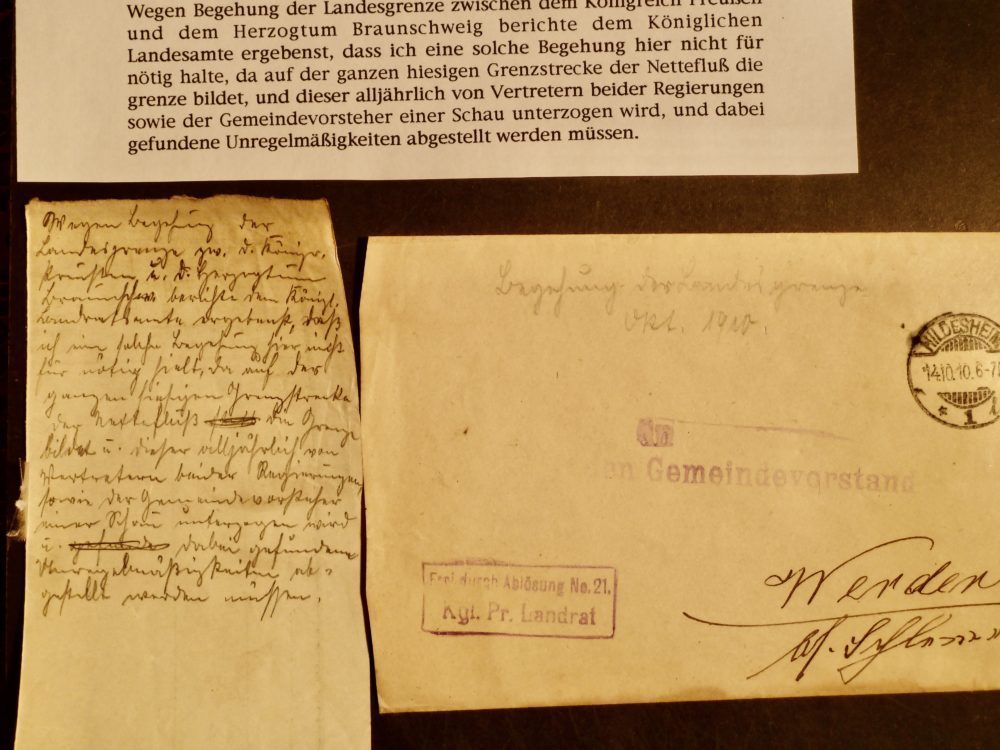 Wegen Begehung der Landesgrenze zwischen dem Königreich Preußen
und dem Herzogtum Braunschweig berichte dem Königlichen
Landesamte ergebenst, dass ich eine solche Begehung hier nicht für
nötig halte, da auf der ganzen hiesigen Grenzstrecke der Nettefluß die
grenze bildet, und dieser alljährlich von Vertretern beider Regierungen
sowie der Gemeindevorsteher einer Schau unterzogen wird, und dabei
gefundene Unregelmäßigkeiten abgestellt werden müssen.
Wegen Begehung der
Landesgrenze zw. d. Königr.
Preußen u. d. Herzogtum
berichte dem Königl.
Landratsamte ergebenst, daß
ich eine solche Begehung hier nicht
für nötig halte, da auf der
ganzen hiesigen Grenzstrecke
der Nettefluß die Grenze
bildet u. dieser alljährlich von
Vertretern beider Regierungen
sowie der Gemeindevorsteher
einer Schau unterzogen wird
u. dabei gefundene
Unregelmäßigkeiten ab-
gestellt werden müssen.
Begehung der Landesgrenze
Okt. 1910.
HILDESHEIM
14.10.10.6-7
* 1
An
den Gemeindevorstand
Frei durch Ablösung No. 21.
Kgl. Pr. Landrat
Werder